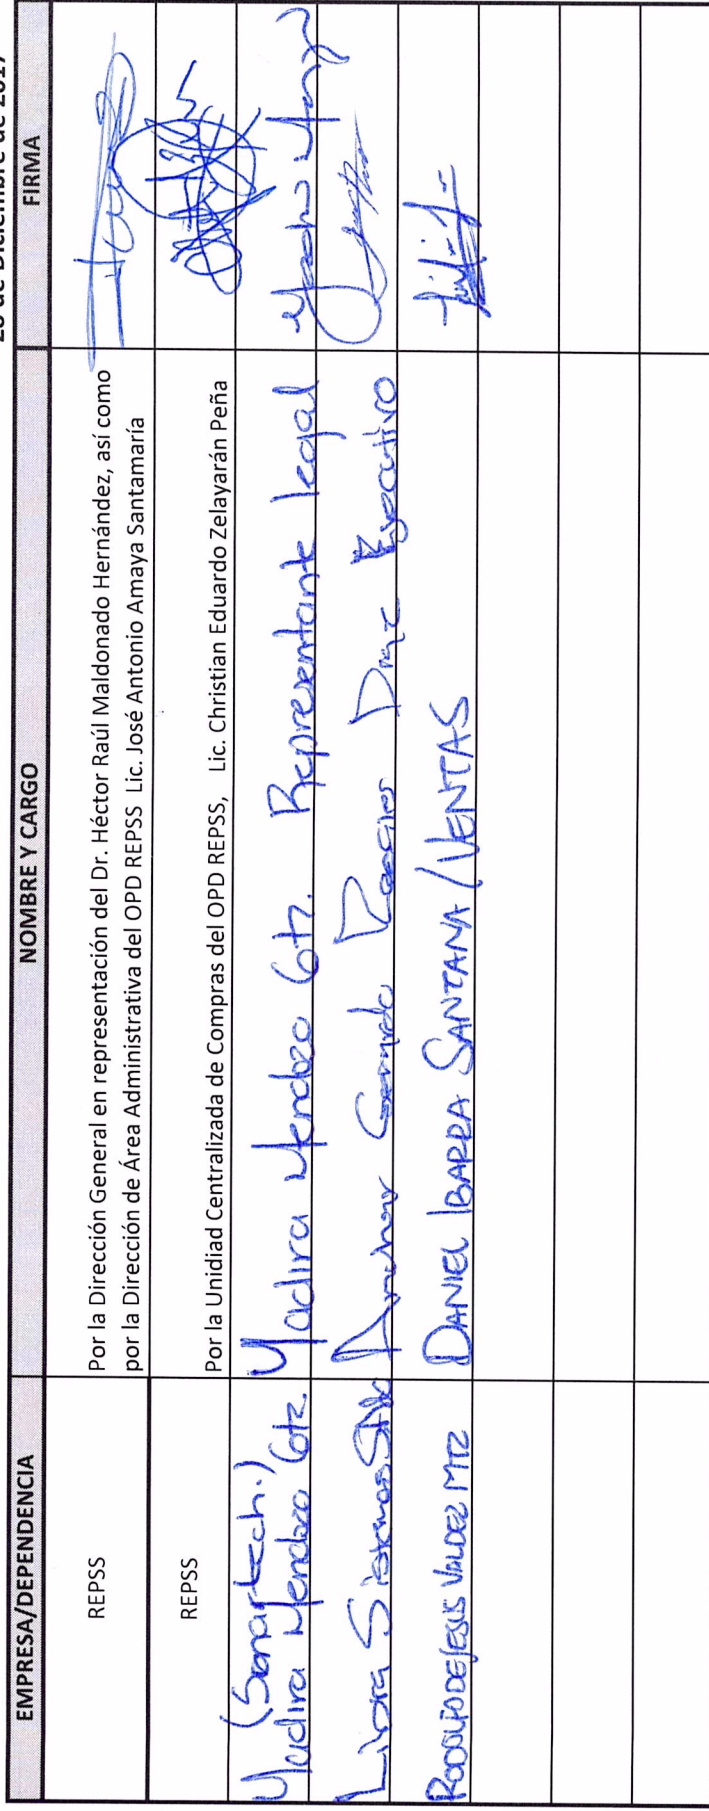 28 de Diciembre de 2017
EMPRESA/DEPENDENCIA NOMBRE Y CARGO FIRMA
REPSS
Por la Dirección General en representación del Dr. Héctor Raúl Maldonado Hernández, así como
por la Dirección de Área Administrativa del OPD REPSS Lic. José Antonio Amaya Santamaría
REPSS Por la Unidiad Centralizada de Compras del OPD REPSS, Lic. Christian Eduardo Zelayarán Peña
(Sonartech.)
Yadira Mendoza Gtz. Yadira Mendoza Gtz. Representante legal
Sistemas Gerardo Ejecutivo
RODOLFO DE JESUS VALDEZ MTZ DANIEL IBARRA SANTANA / VENTAS